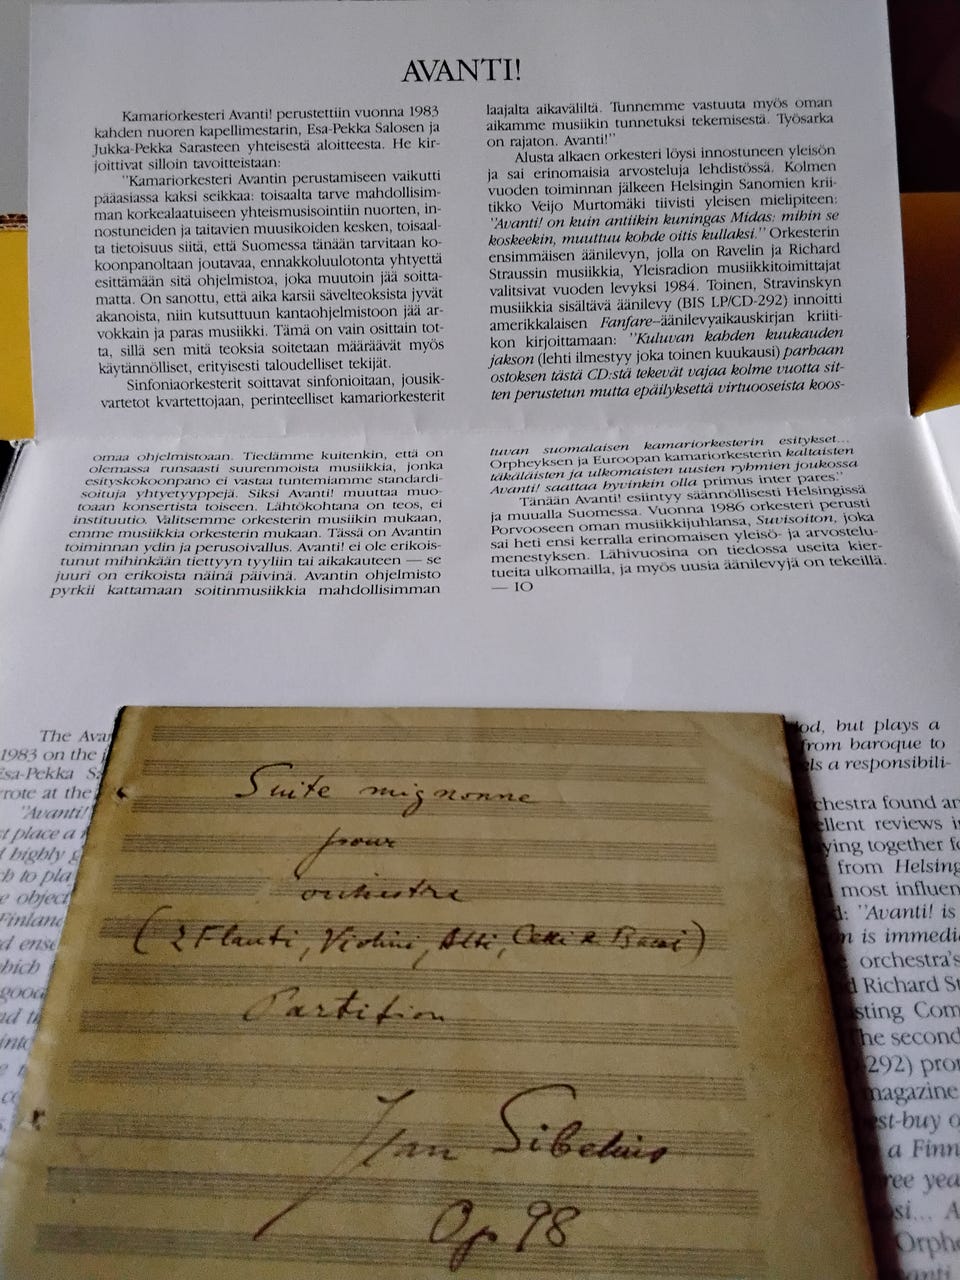 AVANTI!
Kamariorkesteri Avanti! perustettiin vuonna 1983
kahden nuoren kapellimestarin, Esa-Pekka Salosen ja
Jukka-Pekka Sarasteen yhteisestä aloitteesta. He kir-
joittivat silloin tavoitteistaan:
"Kamariorkesteri Avantin perustamiseen vaikutti
pääasiassa kaksi seikkaa: toisaalta tarve mahdollisim-
man korkealaatuiseen yhteismusisointiin nuorten, in-
nostuneiden ja taitavien muusikoiden kesken, toisaal-
ta tietoisuus siitä, että Suomessa tänään tarvitaan ko-
koonpanoltaan joutavaa, ennakkoluulotonta yhtyettä
esittämään sitä ohjelmistoa, joka muutoin jää soitta-
matta. On sanottu, että aika karsii sävelteoksista jyvät
akanoista, niin kutsuttuun kantaohjelmistoon jää ar-
vokkain ja paras musiikki. Tämä on vain osittain tot-
ta, sillä sen mitä teoksia soitetaan määräävät myös
käytännölliset, erityisesti taloudelliset tekijät.
Sinfoniaorkesterit soittavat sinfonioitaan, jousik-
vartetot kvartettojaan, perinteelliset kamariorkesterit
omaa ohjelmistoaan. Tiedämme kuitenkin, että on
olemassa runsaasti suurenmoista musiikkia, jonka
esityskokoonpano ei vastaa tuntemiamme standardi-
soituja yhtyetyyppejä. Siksi Avanti! muuttaa muo-
toaan konsertista toiseen. Lähtökohtana on teos, ei
instituutio. Valitsemme orkesterin musiikin mukaan,
emme musiikkia orkesterin mukaan. Tässä on Avantin
toiminnan ydin ja perusoivallus. Avanti! ei ole erikois-
tunut mihinkään tiettyyn tyyliin tai aikakauteen — se
juuri on erikoista näinä päivinä. Avantin ohjelmisto
pyrkii kattamaan soitinmusiikkia mahdollisimman
laajalta aikaväliltä. Tunnemme vastuuta myös oman
aikamme musiikin tunnetuksi tekemisestä. Työsarka
on rajaton. Avanti!"
Alusta alkaen orkesteri löysi innostuneen yleisön
ja sai erinomaisia arvosteluja lehdistössä. Kolmen
vuoden toiminnan jälkeen Helsingin Sanomien krii-
tikko Veijo Murtomäki tiivisti yleisen mielipiteen:
"Avanti! on kuin antiikin kuningas Midas: mihin se
koskeekin, muuttuu kohde oitis kullaksi." Orkesterin
ensimmäisen äänilevyn, jolla on Ravelin ja Richard
Straussin musiikkia, Yleisradion musiikkitoimittajat
valitsivat vuoden levyksi 1984. Toinen, Stravinskyn
musiikkia sisältävä äänilevy (BIS LP/CD-292) innoitti
amerikkalaisen Fanfare–äänilevyaikauskirjan kriiti-
kon kirjoittamaan: "Kuluvan kahden kuukauden
jakson (lehti ilmestyy joka toinen kuukausi) parhaan
ostoksen tästä CD:stä tekevät vajaa kolme vuotta sit-
ten perustetun mutta epäilyksettä virtuooseista koos-
tuvan suomalaisen kamariorkesterin esitykset...
Orpheyksen ja Euroopan kamariorkesterin kaltaisten
täkäläisten ja ulkomaisten uusien ryhmien joukossa
Avanti! saattaa hyvinkin olla primus inter pares."
Tänään Avanti! esiintyy säännöllisesti Helsingissä
ja muualla Suomessa. Vuonna 1986 orkesteri perusti
Porvooseen oman musiikkijuhlansa, Suvisoiton, joka
sai heti ensi kerralla erinomaisen yleisö- ja arvostelu-
menestyksen. Lähivuosina on tiedossa useita kier-
tueita ulkomailla, ja myös uusia äänilevyjä on tekeillä.
— IO
The Avan
1983 on the
Esa-Pekka Sa
rote at the
"Avanti!
place a
highly
to pla
objec
Finland
ense
which
good
od, but plays a
from baroque to
ls a responsibili-
chestra found an
ellent reviews i
ying together fo
from Helsing
most influen
"Avanti! is
n is immedi
orchestra's
Richard St
sting Com
he second
292) pro
magazine
est-buy o
a Finn
ree yea
si... A
Orphe
anti
Suite mignonne
pour
orchestre
(2 Flauti, Violini, Alti, Celli & Bassi)
Partition
Jean Sibelius
Op. 98